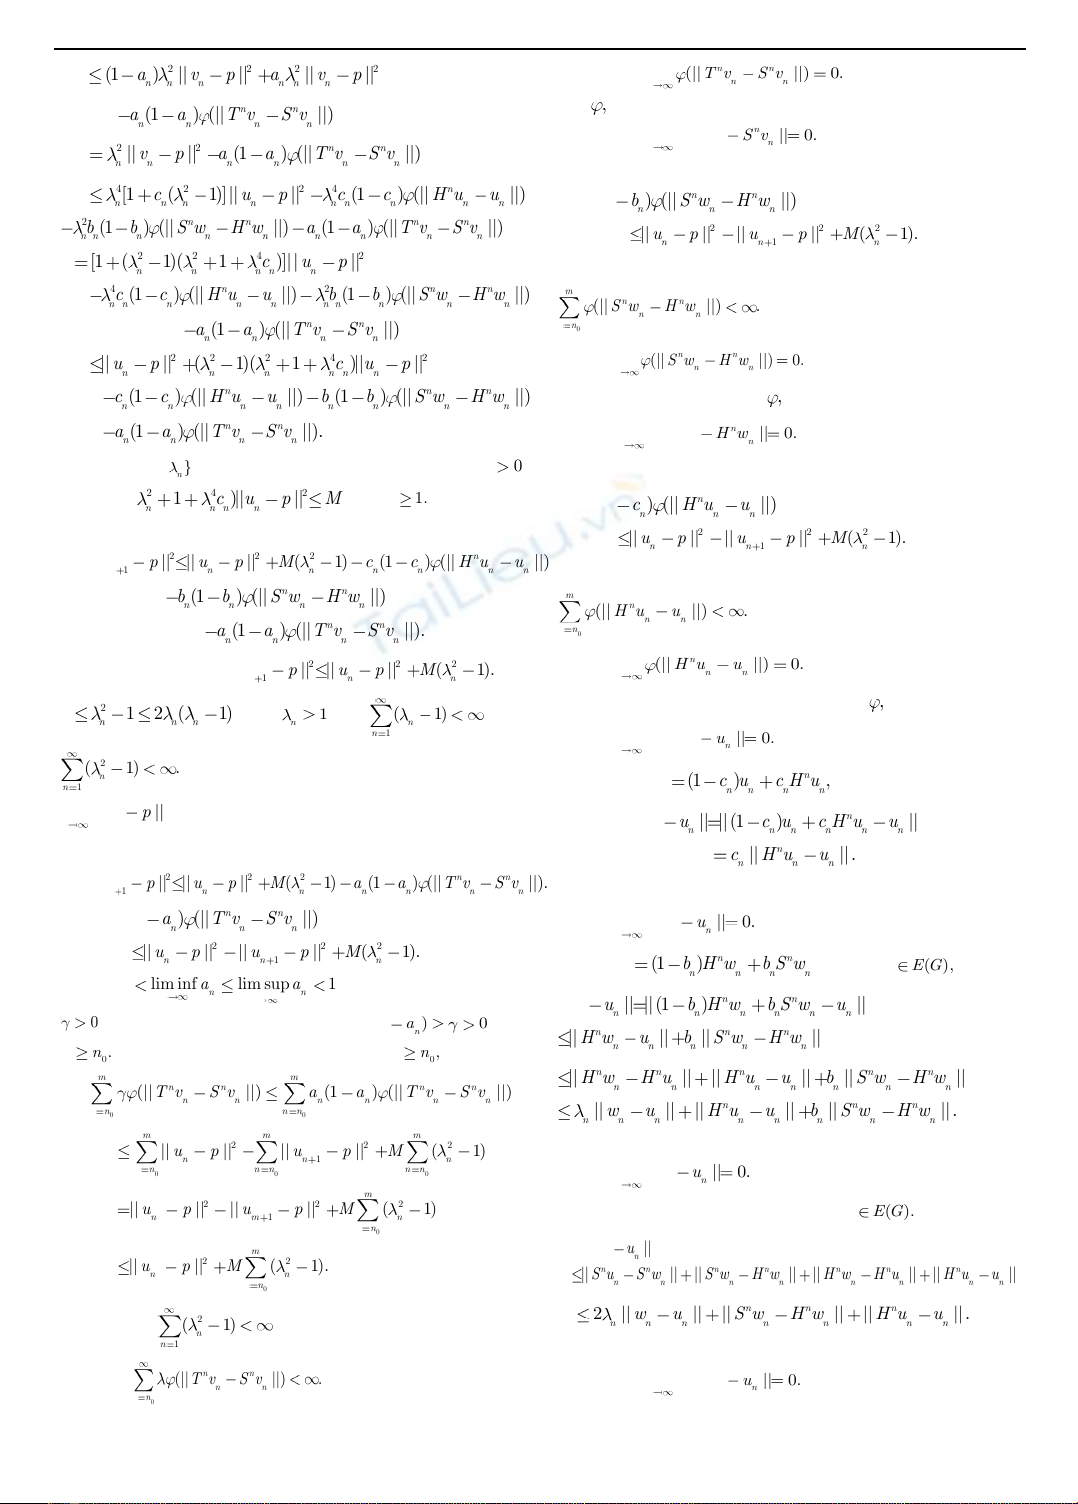 ≤ (1 − a_n)λ_n^2 || v_n − p ||^2 + a_n λ_n^2 || v_n − p ||^2
−a_n(1 − a_n)φ(|| T^n v_n − S^n v_n ||)
= λ_n^2 || v_n − p ||^2 −a_n(1 − a_n)φ(|| T^n v_n − S^n v_n ||)
≤ λ_n^4[1 + c_n(λ_n^2 − 1)] || u_n − p ||^2 −λ_n^4 c_n(1 − c_n)φ(|| H^n u_n − u_n ||)
−λ_n^2 b_n(1 − b_n)φ(|| S^n w_n − H^n w_n ||) − a_n(1 − a_n)φ(|| T^n v_n − S^n v_n ||)
= [1 + (λ_n^2 − 1)(λ_n^2 + 1 + λ_n^4 c_n)] || u_n − p ||^2
−λ_n^4 c_n(1 − c_n)φ(|| H^n u_n − u_n ||) − λ_n^2 b_n(1 − b_n)φ(|| S^n w_n − H^n w_n ||)
−a_n(1 − a_n)φ(|| T^n v_n − S^n v_n ||)
≤|| u_n − p ||^2 +(λ_n^2 − 1)(λ_n^2 + 1 + λ_n^4 c_n)||u_n − p ||^2
−c_n(1 − c_n)φ(|| H^n u_n − u_n ||) − b_n(1 − b_n)φ(|| S^n w_n − H^n w_n ||)
−a_n(1 − a_n)φ(|| T^n v_n − S^n v_n ||).
λ_n} > 0
λ_n^2 + 1 + λ_n^4 c_n)||u_n − p ||^2 ≤ M ≥ 1.
+1 − p ||^2 ≤|| u_n − p ||^2 +M(λ_n^2 − 1) − c_n(1 − c_n)φ(|| H^n u_n − u_n ||)
−b_n(1 − b_n)φ(|| S^n w_n − H^n w_n ||)
−a_n(1 − a_n)φ(|| T^n v_n − S^n v_n ||).
+1 − p ||^2 ≤|| u_n − p ||^2 +M(λ_n^2 − 1).
≤ λ_n^2 − 1 ≤ 2λ_n(λ_n − 1) λ_n > 1 ∑_{n=1}^∞ (λ_n − 1) < ∞
∑_{n=1}^∞ (λ_n^2 − 1) < ∞.
→∞ − p ||
+1 − p ||^2 ≤|| u_n − p ||^2 +M(λ_n^2 − 1) − a_n(1 − a_n)φ(|| T^n v_n − S^n v_n ||).
− a_n)φ(|| T^n v_n − S^n v_n ||)
≤|| u_n − p ||^2 − || u_{n+1} − p ||^2 +M(λ_n^2 − 1).
< lim inf_{→∞} a_n ≤ lim sup_{→∞} a_n < 1
γ > 0 − a_n) > γ > 0
≥ n_0. ≥ n_0,
∑_{=n_0}^m γφ(|| T^n v_n − S^n v_n ||) ≤ ∑_{n=n_0}^m a_n(1 − a_n)φ(|| T^n v_n − S^n v_n ||)
≤ ∑_{=n_0}^m || u_n − p ||^2 − ∑_{n=n_0}^m || u_{n+1} − p ||^2 +M ∑_{n=n_0}^m (λ_n^2 − 1)
=|| u_n − p ||^2 − || u_{m+1} − p ||^2 +M ∑_{=n_0}^m (λ_n^2 − 1)
≤|| u_n − p ||^2 +M ∑_{=n_0}^m (λ_n^2 − 1).
∑_{n=1}^∞ (λ_n^2 − 1) < ∞
∑_{=n_0}^∞ λφ(|| T^n v_n − S^n v_n ||) < ∞.
→∞ φ(|| T^n v_n − S^n v_n ||) = 0.
φ,
→∞ − S^n v_n ||= 0.
− b_n)φ(|| S^n w_n − H^n w_n ||)
≤|| u_n − p ||^2 − || u_{n+1} − p ||^2 +M(λ_n^2 − 1).
∑_{=n_0}^m φ(|| S^n w_n − H^n w_n ||) < ∞.
→∞ φ(|| S^n w_n − H^n w_n ||) = 0.
φ,
→∞ − H^n w_n ||= 0.
− c_n)φ(|| H^n u_n − u_n ||)
≤|| u_n − p ||^2 − || u_{n+1} − p ||^2 +M(λ_n^2 − 1).
∑_{=n_0}^m φ(|| H^n u_n − u_n ||) < ∞.
→∞ φ(|| H^n u_n − u_n ||) = 0.
φ,
→∞ − u_n ||= 0.
= (1 − c_n)u_n + c_n H^n u_n,
− u_n ||=|| (1 − c_n)u_n + c_n H^n u_n − u_n ||
= c_n || H^n u_n − u_n || .
→∞ − u_n ||= 0.
= (1 − b_n)H^n w_n + b_n S^n w_n ∈ E(G),
− u_n ||=|| (1 − b_n)H^n w_n + b_n S^n w_n − u_n ||
≤|| H^n w_n − u_n || +b_n || S^n w_n − H^n w_n ||
≤|| H^n w_n − H^n u_n || + || H^n u_n − u_n || +b_n || S^n w_n − H^n w_n ||
≤ λ_n || w_n − u_n || + || H^n u_n − u_n || +b_n || S^n w_n − H^n w_n || .
→∞ − u_n ||= 0.
∈ E(G).
− u_n ||
≤|| S^n u_n − S^n w_n || + || S^n w_n − H^n w_n || + || H^n w_n − H^n u_n || + || H^n u_n − u_n ||
≤ 2λ_n || w_n − u_n || + || S^n w_n − H^n w_n || + || H^n u_n − u_n || .
→∞ − u_n ||= 0.
TaiLieu.vn